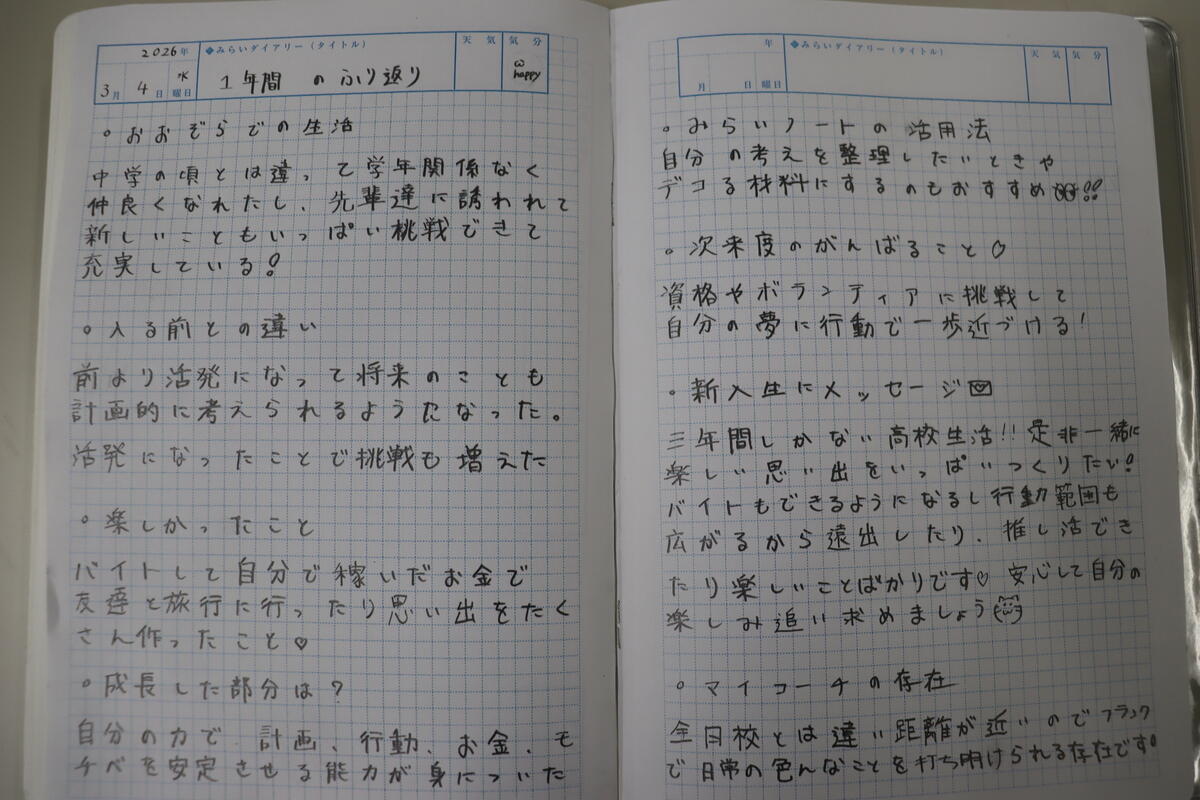 2026年
3月 4日 水曜日
◆みらいダイアリー（タイトル）
1年間 のふり返り
天気
気分
happy
○おおぞらでの生活
中学の頃とは違って学年関係なく
仲良くなれたし、先輩達に誘われて
新しいこともいっぱい挑戦できて
充実している!
○入る前との違い
前より活発になって将来のことも
計画的に考えられるようになった。
活発になったことで挑戦も増えた
○楽しかったこと
バイトして自分で稼いだお金で
友達と旅行に行ったり思い出をたく
さん作ったこと♡
○成長した部分は?
自分の力で 計画、行動、お金、モ
チベを安定させる能力が身についた
年
月 日 曜日
◆みらいダイアリー（タイトル）
天気
気分
○みらいノートの活用法
自分の考えを整理したいときや
デコる材料にするのもおすすめ!!
○次来度のがんばること♡
資格やボランティアに挑戦して
自分の夢に行動で一歩近づける!
○新入生にメッセージ
三年間しかない高校生活!! 是非一緒に
楽しい思い出をいっぱいつくりたい!
バイトもできるようになるし行動範囲も
広がるから遠出したり、推し活でき
たり楽しいことばかりです♡ 安心して自分の
楽しみ追い求めましょう
○マイコーチの存在
全日校とは違い距離が近いのでフランク
で日常の色んなことを打ち明けられる存在です。